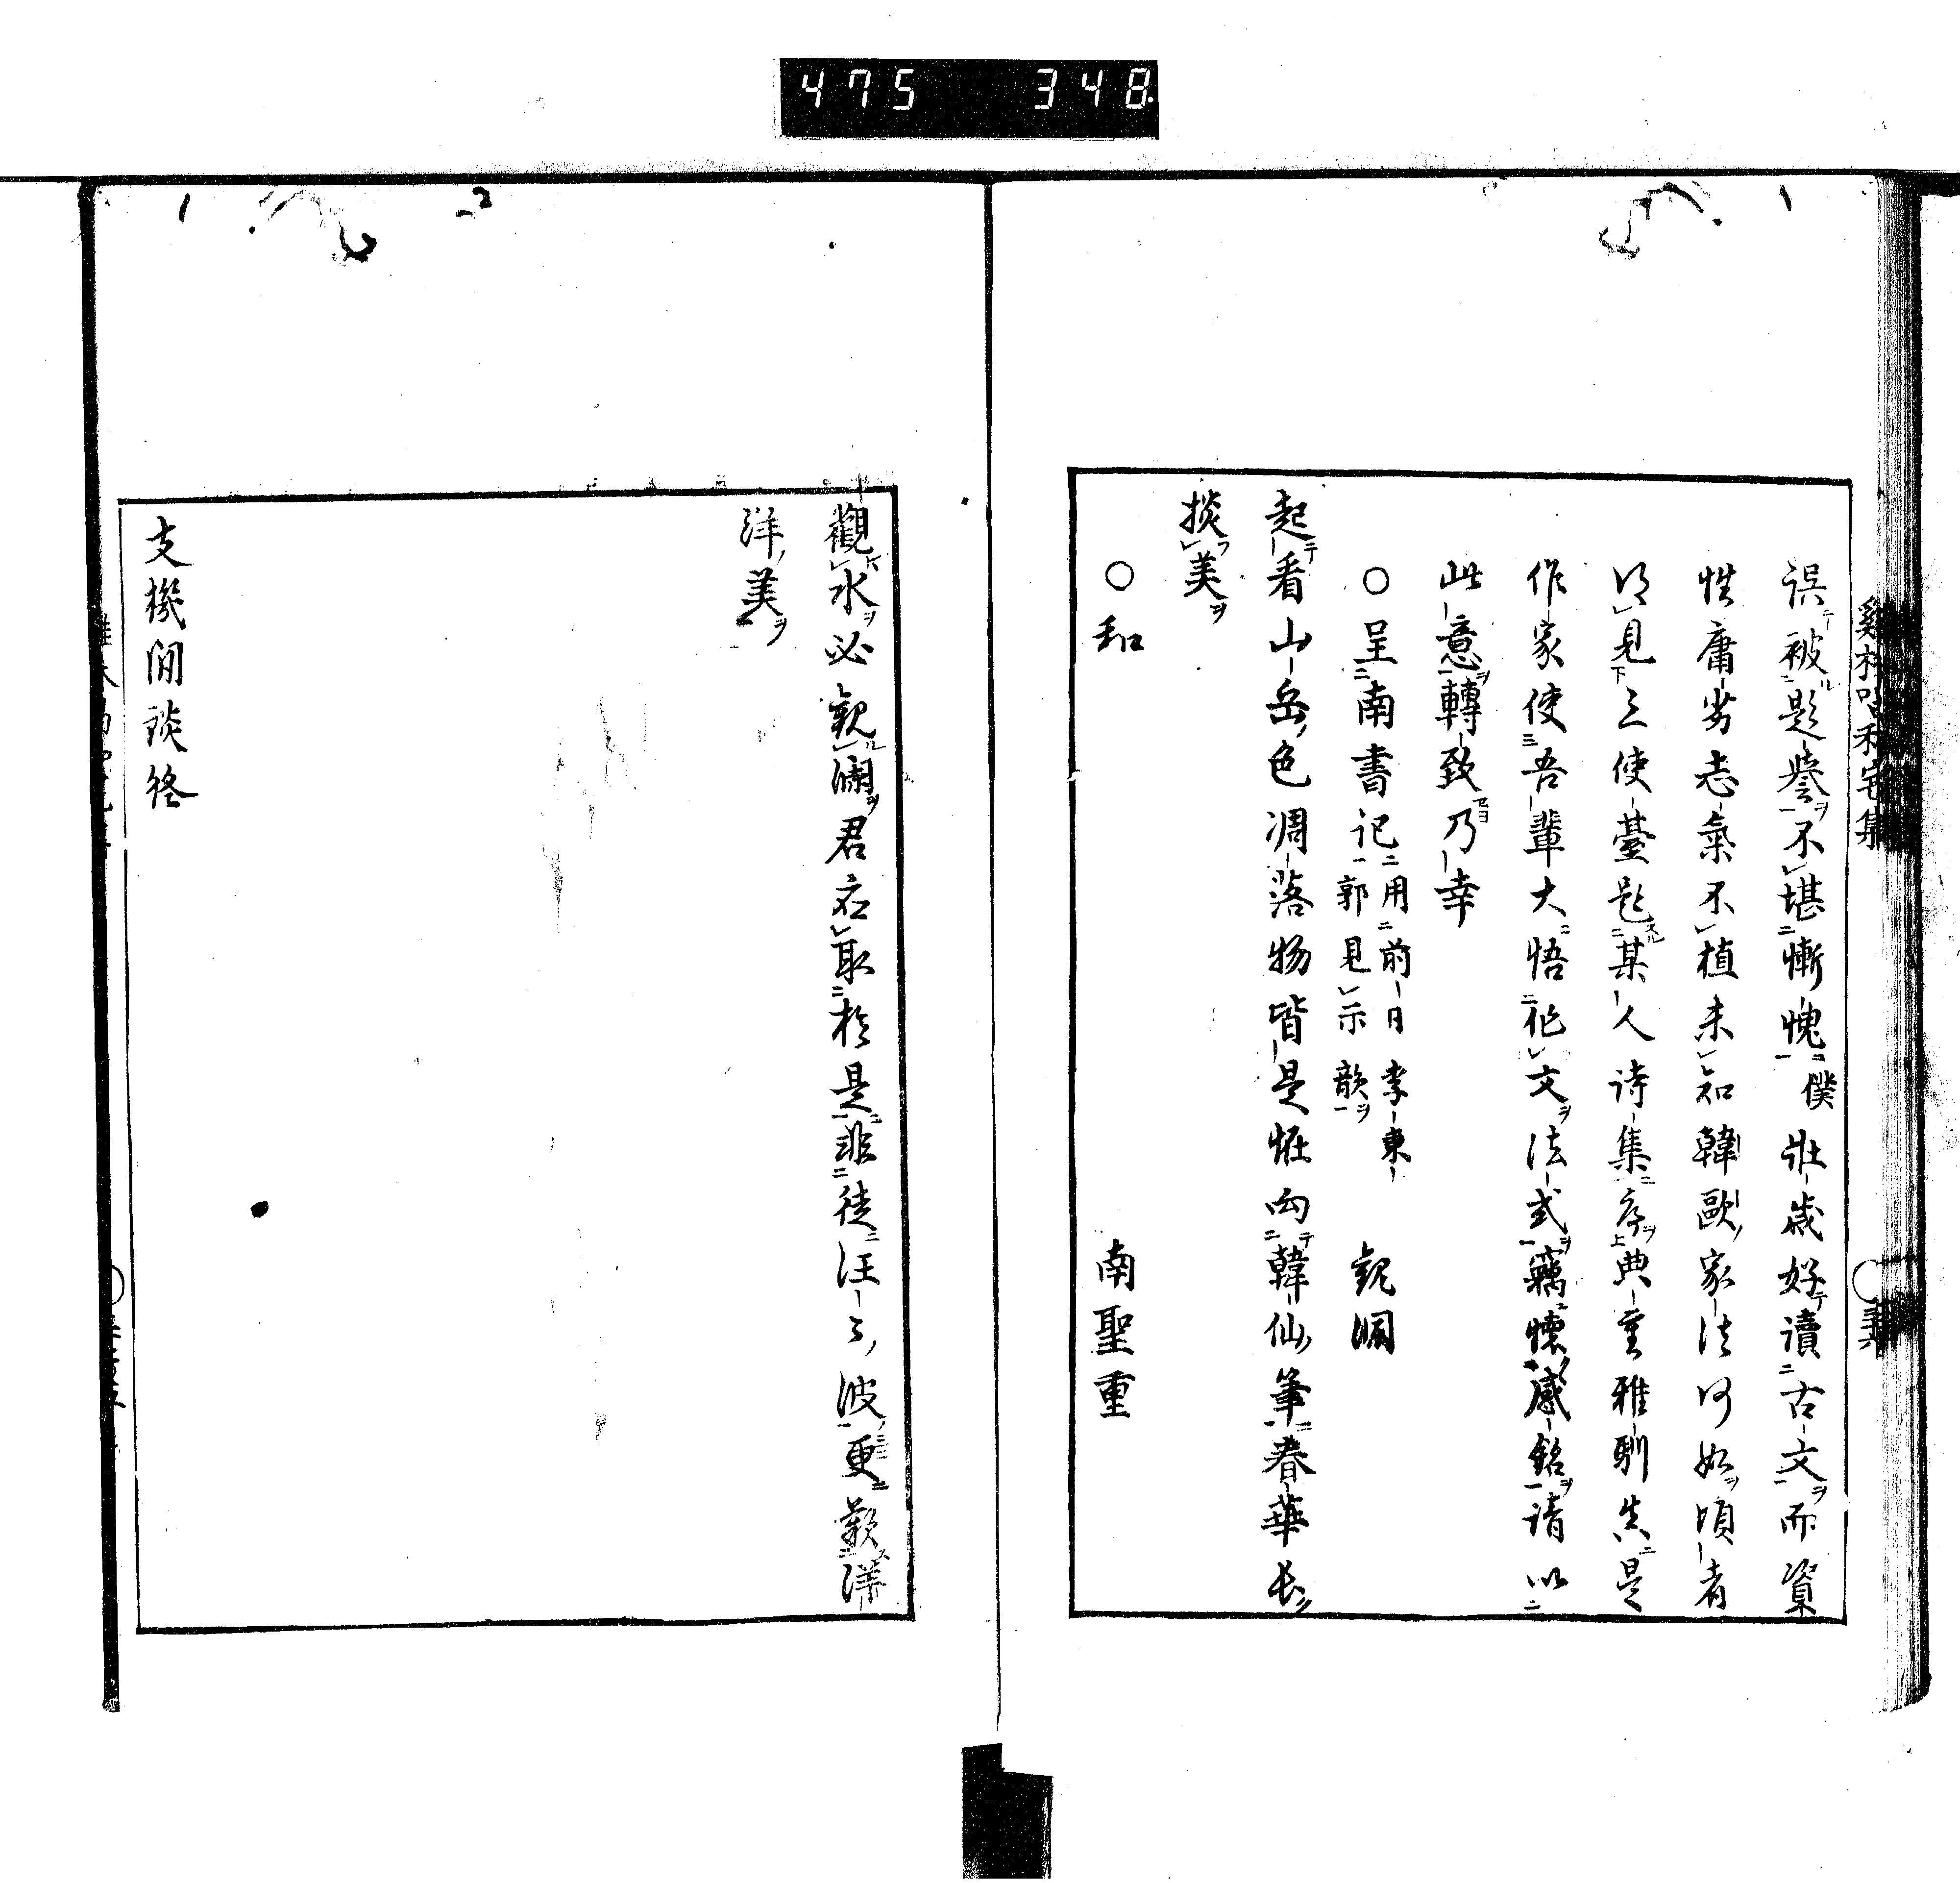 475 348
誤被題誉不堪慚愧僕壯歳好讀古文而資
性庸劣志氣不植未知韓歐家法何如頃者
得見三使臺題某人詩集序典重雅馴真是
作家使吾輩大悟作文法式竊懐感銘請以
此意轉致乃幸
○呈南書記 用前日李東郭見示韻 觀瀾
起看山岳色凋落物皆是恠向韓仙筆春華長
掞美
○和 南聖重
觀水必觀瀾君応取於是非徒汪々波更歎洋
洋美
支機閒談終